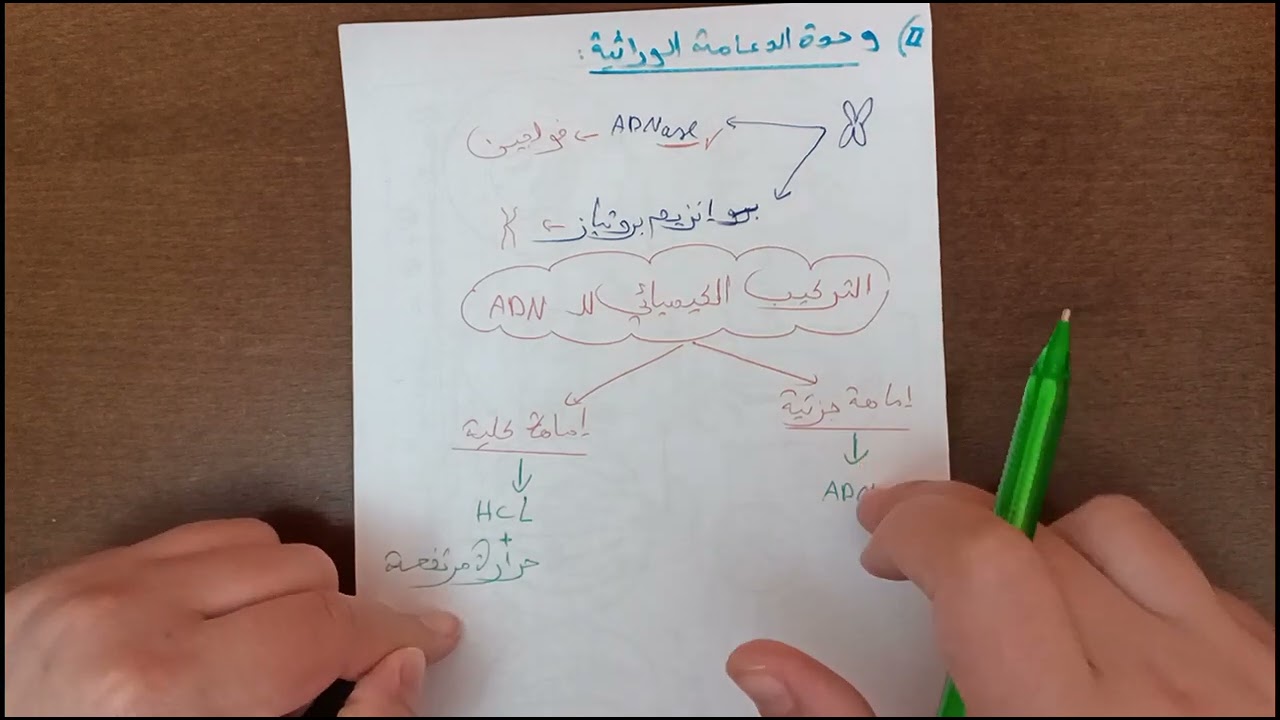 II) وحدة الدعامة الوراثية:
ADNase → فولجين
إنزيم بروتياز ←
التركيب الكيميائي للـ ADN
إماهة جزئية
إماهة كلية
ADN
HCL
+
حرارة مرتفعة